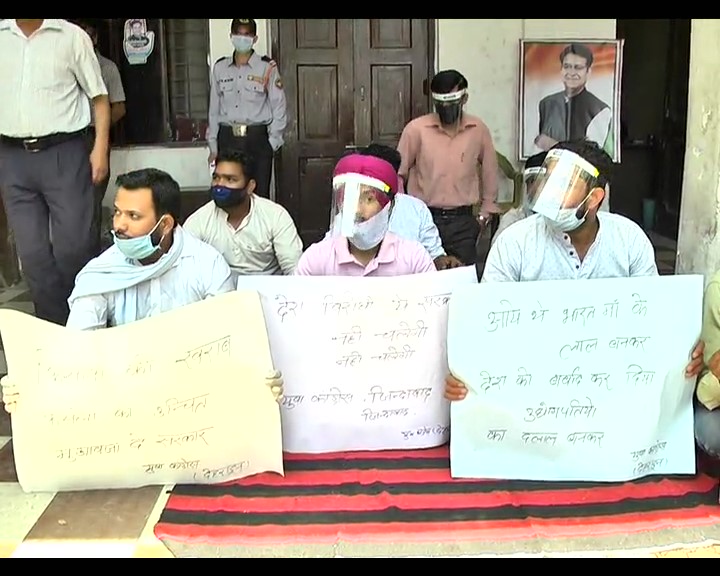 किसानों की खराब
फसलों का उचित
मुआवजा दे सरकार
युवा कांग्रेस
(देहरादून)
देश विरोधी ये सरकार
नही चलेगी
नही चलेगी
युवा कांग्रेस जिन्दाबाद
जिन्दाबाद
आये थे भारत माँ के
लाल बनकर
देश को बर्बाद कर दिया
उद्योगपतियो
का दलाल बनकर
युवा कांग्रेस
(देहरादून)